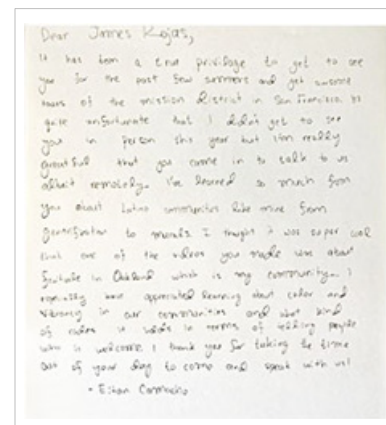 Dear James Rojas,
It has been a true privilege to get to see
you for the past few summers and get awesome
tours of the mission district in San Francisco. It's
quite unfortunate that I didn't get to see
you in person this year but I'm really
grateful that you came in to talk to us
albeit remotely. I've learned so much from
you about Latino communities like mine from
gentrification to murals. I thought it was super cool
that one of the videos you made was about
fruitvale in Oakland which is my community. I
especially have appreciated learning about color and
vibrancy in our communities and what kind
of it holds in terms of telling people
who is welcome. I thank you for taking the time
out of your day to come and speak with us!
- Ethan Camacho